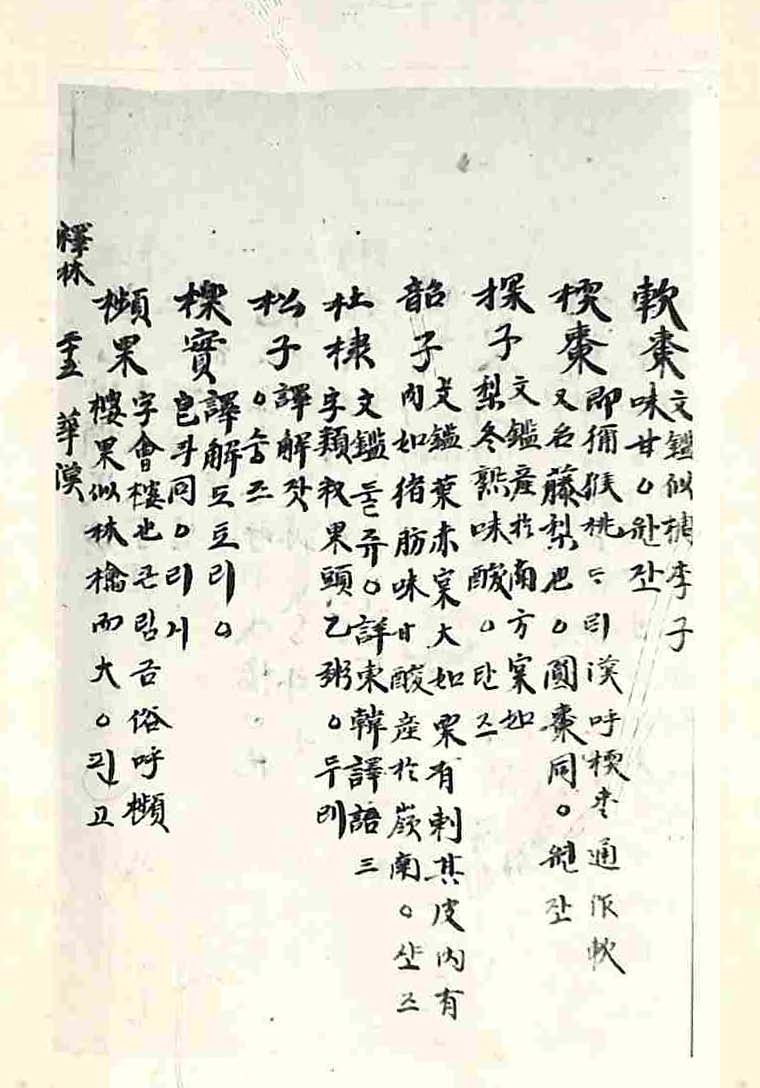 軟棗
文鑑似楔李子
味甘○원잔
楔棗
即獼猴桃드리漢呼楔棗通作軟
又名藤梨也○圓棗同○원잔
探子
文鑑産於南方實如
梨冬熟味酸○탄즈
韶子
文鑑葉赤實大如栗有刺其皮內有
肉如猪肪味甘酸産於嶺南○샤즈
杜棣
文鑑둘쥬○詳東韓譯語三
字類釈果頭乙粥○두레
松子
譯解잣
○숭즈
櫟實
譯解도토리○
皂斗同○리시
櫇果
字會樓也굴림금俗呼櫇
樓果似林檎而大○핀고
釋林 二十五 華漢